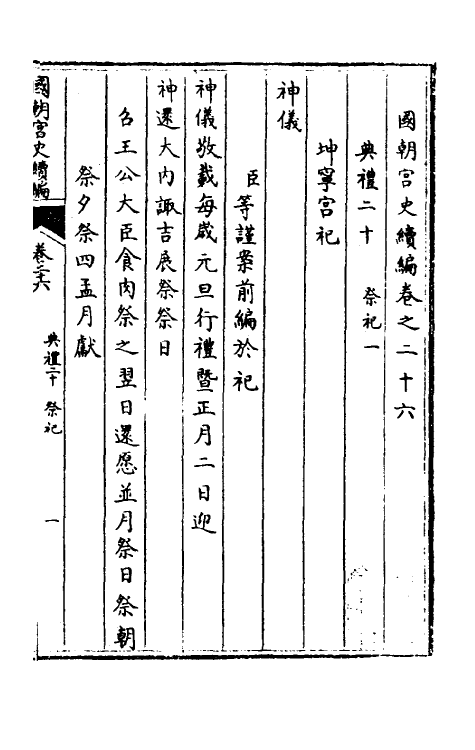 國朝宮史續編卷之二十六
典禮二十 祭祀一
坤寧宮祀
神儀
臣等謹案前編於祀
神儀敬載每歲元旦行禮暨正月二日迎
神還大內諏吉展祭祭日
召王公大臣食肉祭之翌日還愿並月祭日祭朝
祭夕祭四孟月獻
國朝宮史續編 卷二十六 典禮二十 祭祀 一